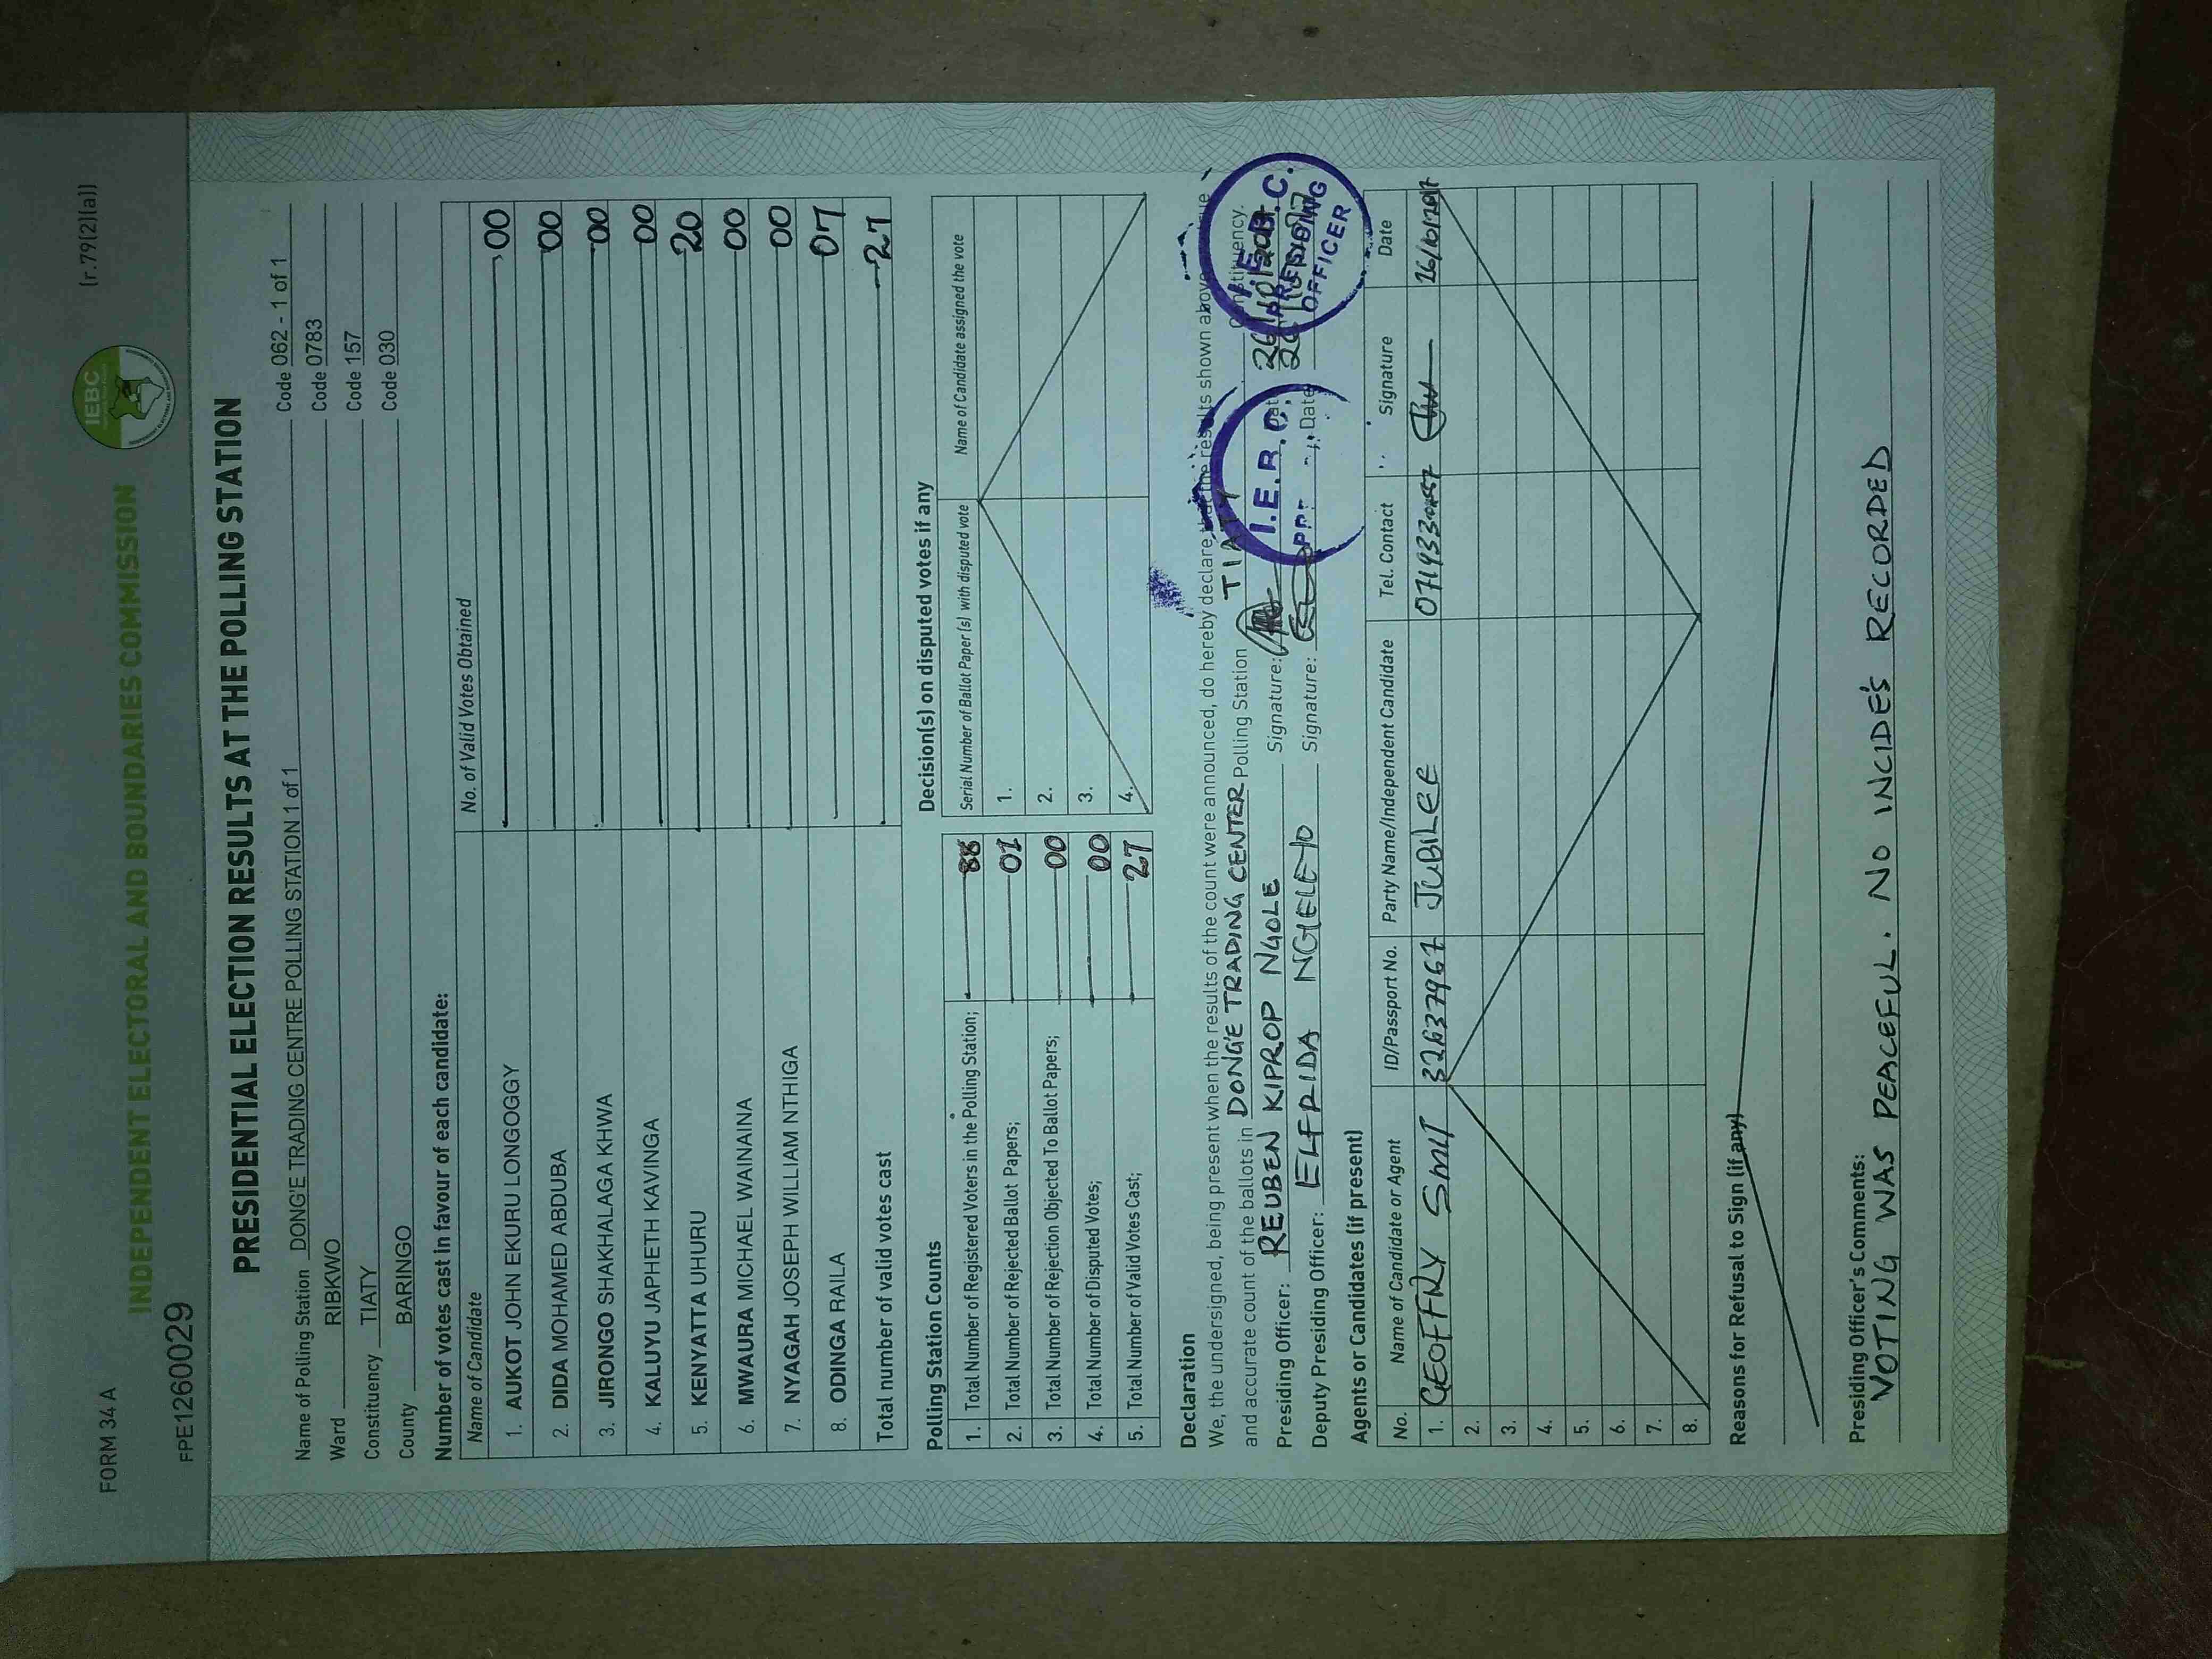 FORM 34 A
(r.79(2)(a))
IEBC
INDEPENDENT ELECTORAL AND BOUNDARIES COMMISSION
FPE1260029
PRESIDENTIAL ELECTION RESULTS AT THE POLLING STATION
Name of Polling Station DONG'E TRADING CENTRE POLLING STATION 1 of 1 Code 062 - 1 of 1
Ward RIBKWO Code 0783
Constituency TIATY Code 157
County BARINGO Code 030
Number of votes cast in favour of each candidate:
Name of Candidate No. of Valid Votes Obtained
1. AUKOT JOHN EKURU LONGOGGY 00
2. DIDA MOHAMED ABDUBA 00
3. JIRONGO SHAKHALAGA KHWA 00
4. KALUYU JAPHETH KAVINGA 00
5. KENYATTA UHURU 20
6. MWAURA MICHAEL WAINAINA 00
7. NYAGAH JOSEPH WILLIAM NTHIGA 00
8. ODINGA RAILA 07
Total number of valid votes cast 27
Polling Station Counts
1. Total Number of Registered Voters in the Polling Station; 88
2. Total Number of Rejected Ballot Papers; 01
3. Total Number of Rejection Objected To Ballot Papers; 00
4. Total Number of Disputed Votes; 00
5. Total Number of Valid Votes Cast; 27
Decision(s) on disputed votes if any
Serial Number of Ballot Paper (s) with disputed vote Name of Candidate assigned the vote
1.
2.
3.
4.
Declaration
We, the undersigned, being present when the results of the count were announced, do hereby declare that the results shown above
and accurate count of the ballots in DONG'E TRADING CENTER Polling Station TIATY Constituency.
Presiding Officer: REUBEN KIPROP NGOLE Signature:
Deputy Presiding Officer: ELFRIDA NGELETO Signature: Date
I.E.B.C.
I.E.B.C.
PRESIDING
OFFICER
Agents or Candidates (if present)
No. Name of Candidate or Agent ID/Passport No. Party Name/Independent Candidate Tel. Contact Signature Date
1. GEOFFRY 32637967 JUBILEE 26/10/2017
2.
3.
4.
5.
6.
7.
8.
Reasons for Refusal to Sign (if any)
Presiding Officer's Comments:
VOTING WAS PEACEFUL. NO INCIDE'S RECORDED